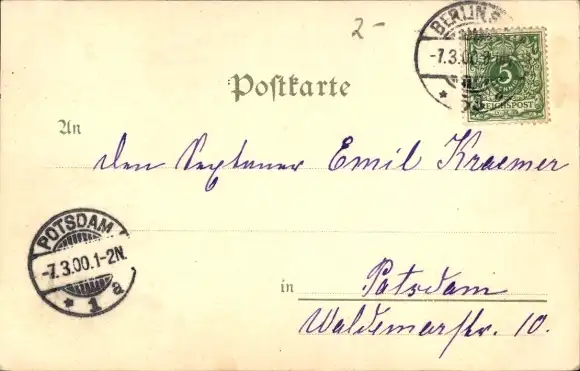 2-
BERLIN
-7.3.00.
5
REICHSPOST
Postkarte
An
den Sextaner Emil Kraemer
POTSDAM
-7.3.00.1-2N.
* 1 a
in Potsdam
Waldemarstr. 10.